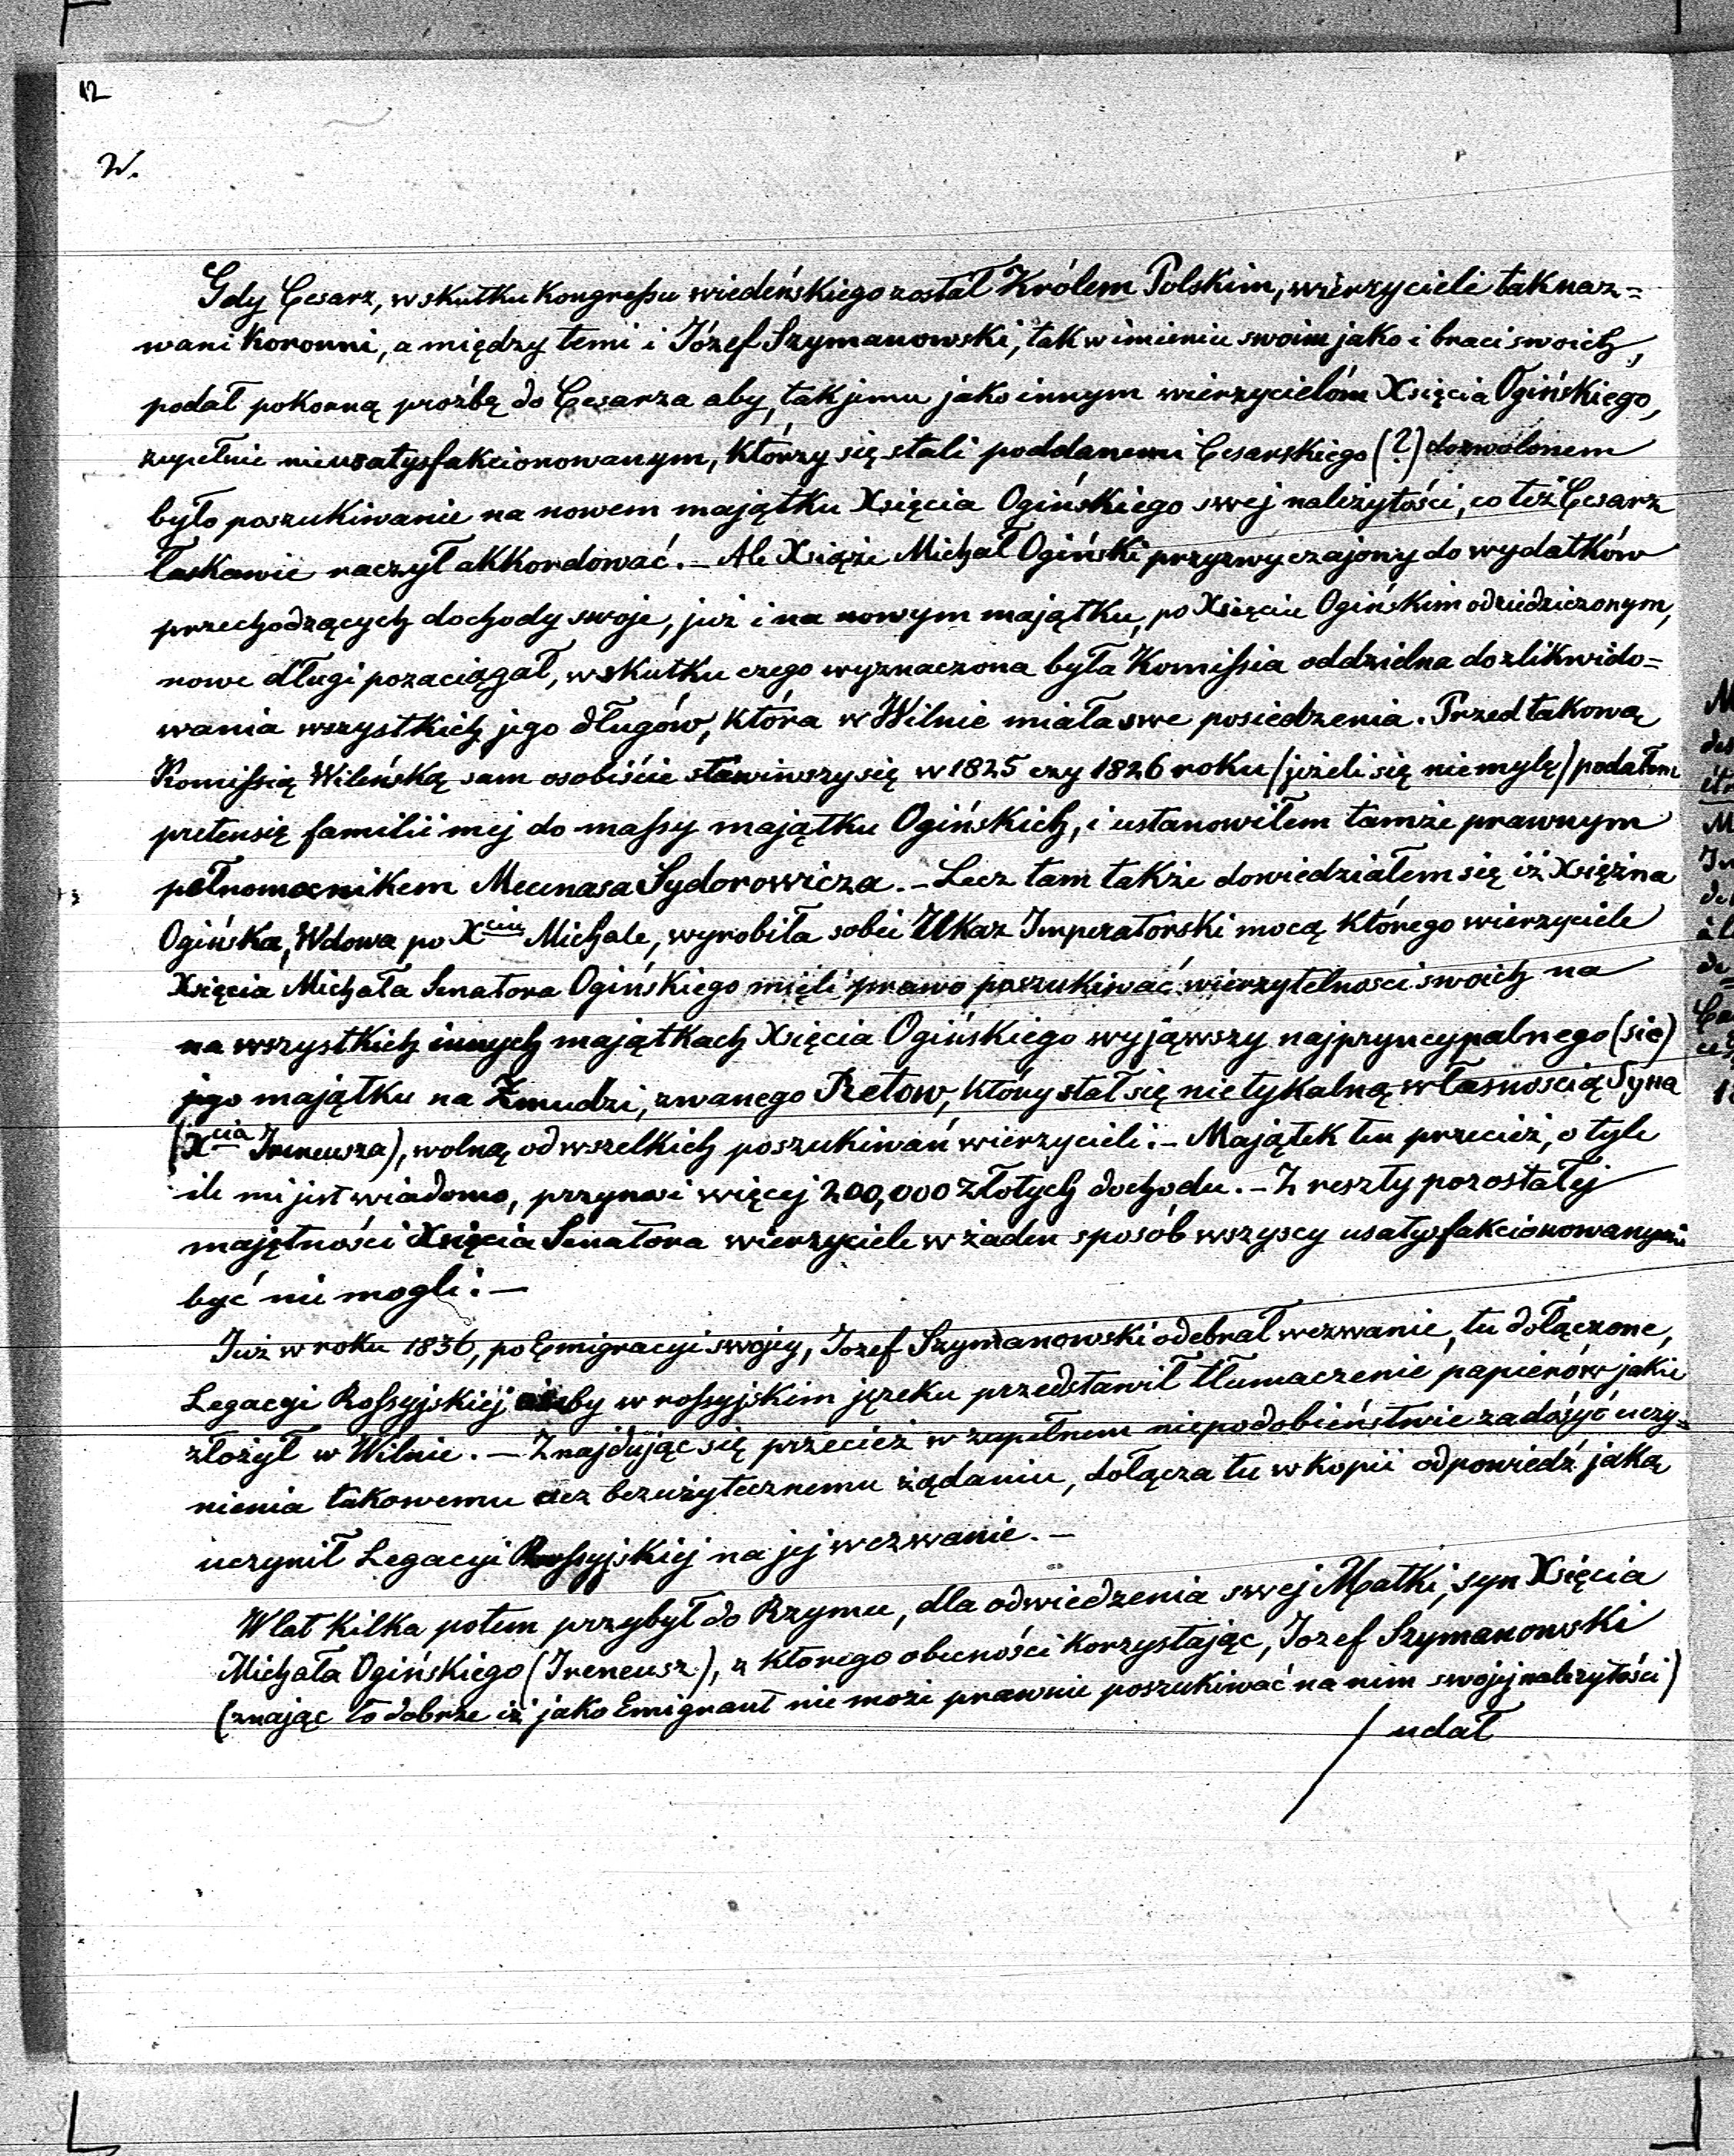 12
W.
Gdy Cesarz, w skutku Kongressu wiedeńskiego został Królem Polskim, wierzyciele tak naz=
wani Koronni, a między temi i Józef Szymanowski, tak w imieniu swoim jako i braci swoich,
podał pokorną prożbę do Cesarza aby, tak jemu jako innym wierzycielóm Xsięcia Ogińskiego,
zupełnie nieusatysfakcionowanym, którzy się stali poddanemi Cesarskiego (?) dozwolonem
było poszukiwanie na nowem majątku Xsięcia Ogińskiego swej należytości, co też Cesarz
łaskawie raczył akkordować. — Ale Xsiąże Michał Ogiński przyzwyczajony do wydatków
przechodzących dochody swoje, już i na nowym majątku, po Xsięciu Ogińskim odziedziczonym,
nowe długi pozaciągał, w skutku czego wyznaczona była Komissia oddzielna do zlikwido=
wania wszystkich jego długów, która w Wilnie miała swe posiedzenia. Przed takową
Komissią Wileńską sam osobiście stawiwszy się w 1825 czy 1826 roku (jeżeli się nie mylę) podałem
pretensię familii mej do massy majątku Ogińskich, i ustanowiłem tamże prawnym
pełnomocnikem Mecenasa Sydorowicza. — Lecz tam także dowiedziałem się iż Xsiężna
Ogińska, Wdowa po Xciu Michale, wyrobiła sobie Ukaz Imperatorski mocą którego wierzyciele
Xsięcia Michała Senatora Ogińskiego mieli prawo poszukiwać wierzytelnosci swoich na
na wszystkich innych majątkach Xsięcia Ogińskiego wyjąwszy najpryncypalnego (sic)
jego majątku na Żmudzi, zwanego Retow, który stał się nietykalną własnoscią Syna
(Xcia Ireneusza), wolną od wszelkich poszukiwań wierzycieli. — Majątek ten przecież, o tyle
ile mi jest wiadomo, przynosi więcej 200,000 złotych dochodu. — Z reszty pozostałej
majętności Xsięcia Senatora wierzyciele w żaden sposób wszyscy usatysfakcionowanymi
być nie mogli. —
Już w roku 1836, po Emigracyi swojej, Jozef Szymanowski odebrał wezwanie, tu dołączone,
Legacyi Rossyjskiej ażeby w rossyjskim języku przedstawił tłumaczenie papierów jakie
złożył w Wilnie. — Znajdując się przecież w zupełnem niepodobieństwie zadosyć uczy=
nienia takowemu acz bezużytecznemu żądaniu, dołącza tu w kopii odpowiedź jaką
uczynił Legacyi Rossyjskiej na jej wezwanie. —
W lat kilka potem przybył do Rzymu, dla odwiedzenia swej Matki, syn Xsięcia
Michała Ogińskiego (Ireneusz), z ktorego obecności korzystając, Jozef Szymanowski
(znając to dobrze iż jako Emigrant nie może prawnie poszukiwać na nim swojej należytości)
/ udał